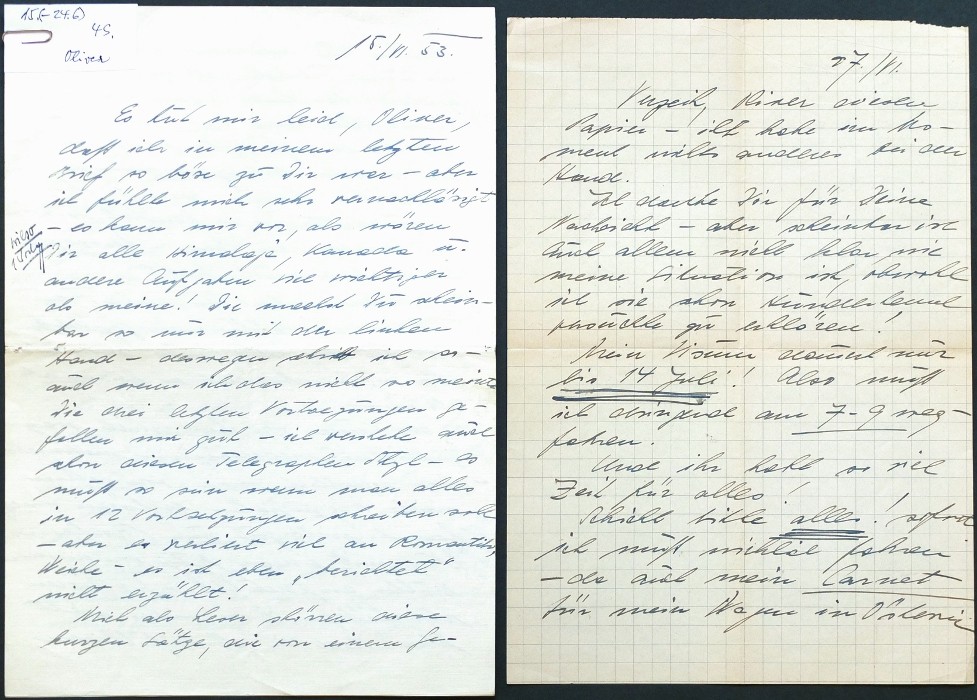 15.(-24.6)
4S.
Oliver
15./VI. 53.
Es tut mir leid, Oliver,
daß ich in meinem letzten
Brief so böse zu Dir war – aber
ich fühlte mich sehr vernachlässigt
– es kam mir vor, als wären
Dir alle Himalaja, Kanada u.
andere Aufgaben viel wichtiger
als meine! Die machst Du schein-
bar so nur mit der linken
Hand – deswegen schrieb ich so –
auch wenn ich das nicht so meinte
Die drei letzten Fortsetzungen ge-
fallen mir gut – ich verstehe auch
schon diesen Telegraphen Styl – es
muß so sein wenn man alles
in 12 Fortsetzungen schreiben soll
– aber es verliert viel an Romantik,
Weiche – es ist eben „berichtet"
nicht erzählt!
Mich als Leser stören diese
kurzen Sätze, die von einem Ge-
27./VI.
Verzeih, Oliver diesen
Papier – ich habe im Mo-
ment nichts anderes bei der
Hand.
Ich danke Dir für Deine
Nachricht – aber scheinbar ist
Euch allem nicht klar wie
meine Situation ist, obwohl
ich sie schon hundertemal
versuchte zu erklären!
Mein Visum dauert nur
bis 14 Juli! Also muß
ich dringend am 7-9 weg-
fahren.
Und ihr habt so viel
Zeit für alles!
Schickt bitte alles! sofort
ich muß wirklich fahren
– da auch mein Carnet
für mein Wagen in Österrei-